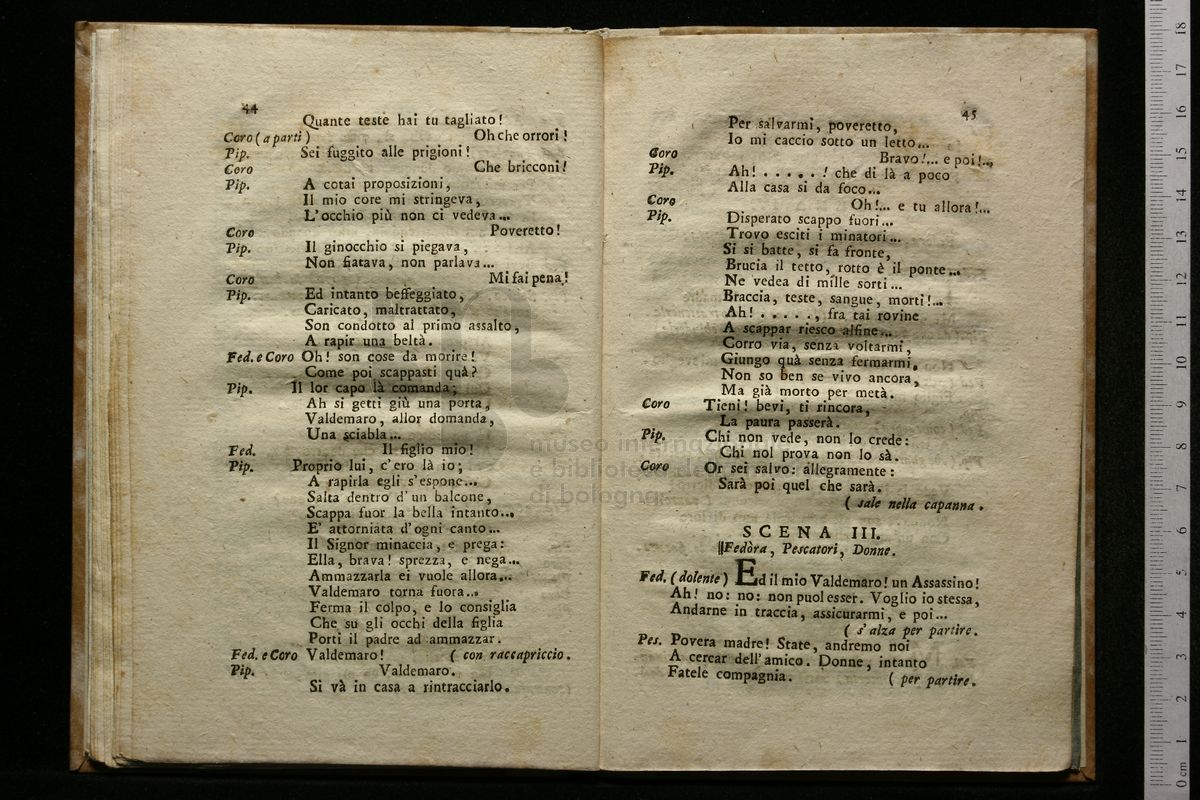 44
Quante teste hai tu tagliato!
Coro (a parti) Oh che orrori!
Pip. Sei fuggito alle prigioni!
Coro Che bricconi!
Pip. A cotai proposizioni,
Il mio core mi stringeva,
L'occhio più non ci vedeva...
Coro Poveretto!
Pip. Il ginocchio si piegava,
Non fiatava, non parlava...
Coro Mi fai pena!
Pip. Ed intanto beffeggiato,
Caricato, maltrattato,
Son condotto al primo assalto,
A rapir una beltà.
Fed. e Coro Oh! son cose da morire!
Come poi scappasti quà?
Pip. Il lor capo là comanda;
Ah si getti giù una porta,
Valdemaro, allor domanda,
Una sciabla...
Fed. Il figlio mio!
Pip. Proprio lui, c'ero là io;
A rapirla egli s'espone...
Salta dentro d'un balcone,
Scappa fuor la bella intanto...
E' attorniata d'ogni canto...
Il Signor minaccia, e prega:
Ella, brava! sprezza, e nega...
Ammazzarla ei vuole allora...
Valdemaro torna fuora...
Ferma il colpo, e lo consiglia
Che su gli occhi della figlia
Porti il padre ad ammazzar.
Fed. e Coro Valdemaro! ( con raccapriccio.
Pip. Valdemaro.
Si và in casa a rintracciarlo.
45
Per salvarmi, poveretto,
Io mi caccio sotto un letto...
Coro Bravo!... e poi!...
Pip. Ah! . . . . . ! che di là a poco
Alla casa si da foco...
Coro Oh!... e tu allora!...
Pip. Disperato scappo fuori...
Trovo esciti i minatori...
Si si batte, si fa fronte,
Brucia il tetto, rotto è il ponte...
Ne vedea di mille sorti...
Braccia, teste, sangue, morti!...
Ah! . . . . . , fra tai rovine
A scappar riesco alfine...
Corro via, senza voltarmi,
Giungo quà senza fermarmi,
Non so ben se vivo ancora,
Ma già morto per metà.
Coro Tieni! bevi, ti rincora,
La paura passerà.
Pip. Chi non vede, non lo crede:
Chi nol prova non lo sà.
Coro Or sei salvo: allegramente:
Sarà poi quel che sarà.
( sale nella capanna.
SCENA III.
Fedòra, Pescatori, Donne.
Fed. (dolente) Ed il mio Valdemaro! un Assassino!
Ah! no: no: non puol esser. Voglio io stessa,
Andarne in traccia, assicurarmi, e poi...
( s'alza per partire.
Pes. Povera madre! State, andremo noi
A cercar dell'amico. Donne, intanto
Fatele compagnia. ( per partire.
museo internazionale
e biblioteca de
di bologna
0 cm 1 2 3 4 5 6 7 8 9 10 11 12 13 14 15 16 17 18